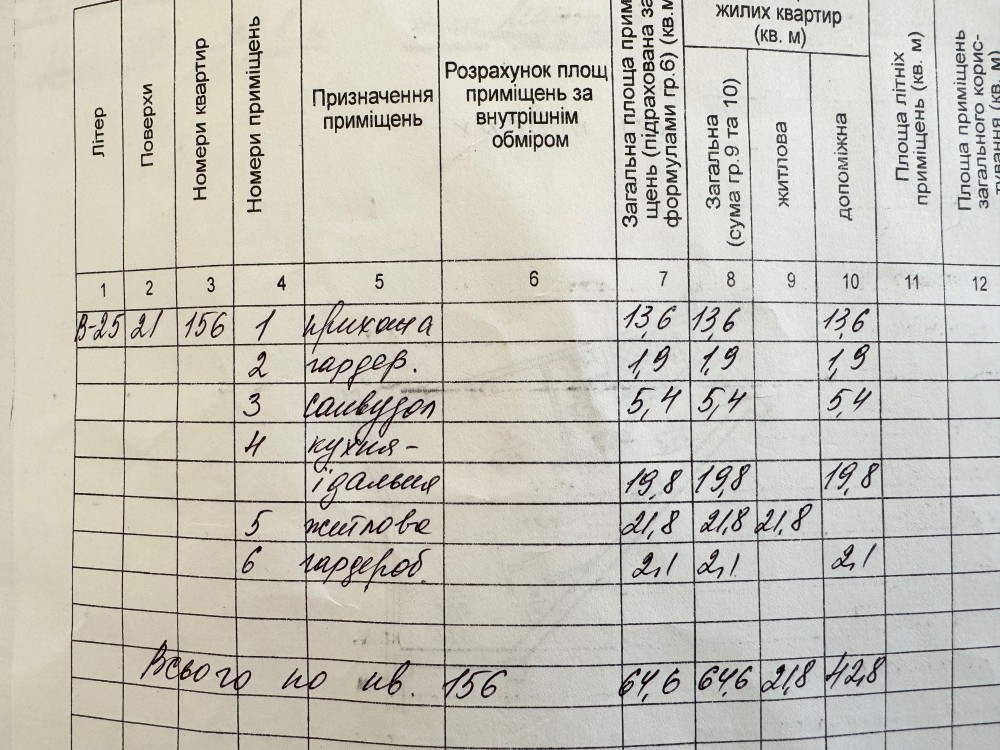 Літер
Поверхи
Номери квартир
Номери приміщень
Призначення
приміщень
Розрахунок площ
приміщень за
внутрішнім
обміром
Загальна площа прим
щень (підрахована за
формулами гр.6) (кв.м
жилих квартир
(кв. м)
Загальна
(сума гр.9 та 10)
житлова
допоміжна
Площа літніх
приміщень (кв. м)
Площа приміщень
загального корис-
тування (кв. м)
1 2 3 4 5 6 7 8 9 10 11 12
В-25 21 156 1 прихожа 13,6 13,6 13,6
2 гардер. 1,9 1,9 1,9
3 санвузол 5,4 5,4 5,4
4 кухня-
їдальня 19,8 19,8 19,8
5 житлова 21,8 21,8 21,8
6 гардероб. 2,1 2,1 2,1
Всього по кв. 156 64,6 64,6 21,8 42,8